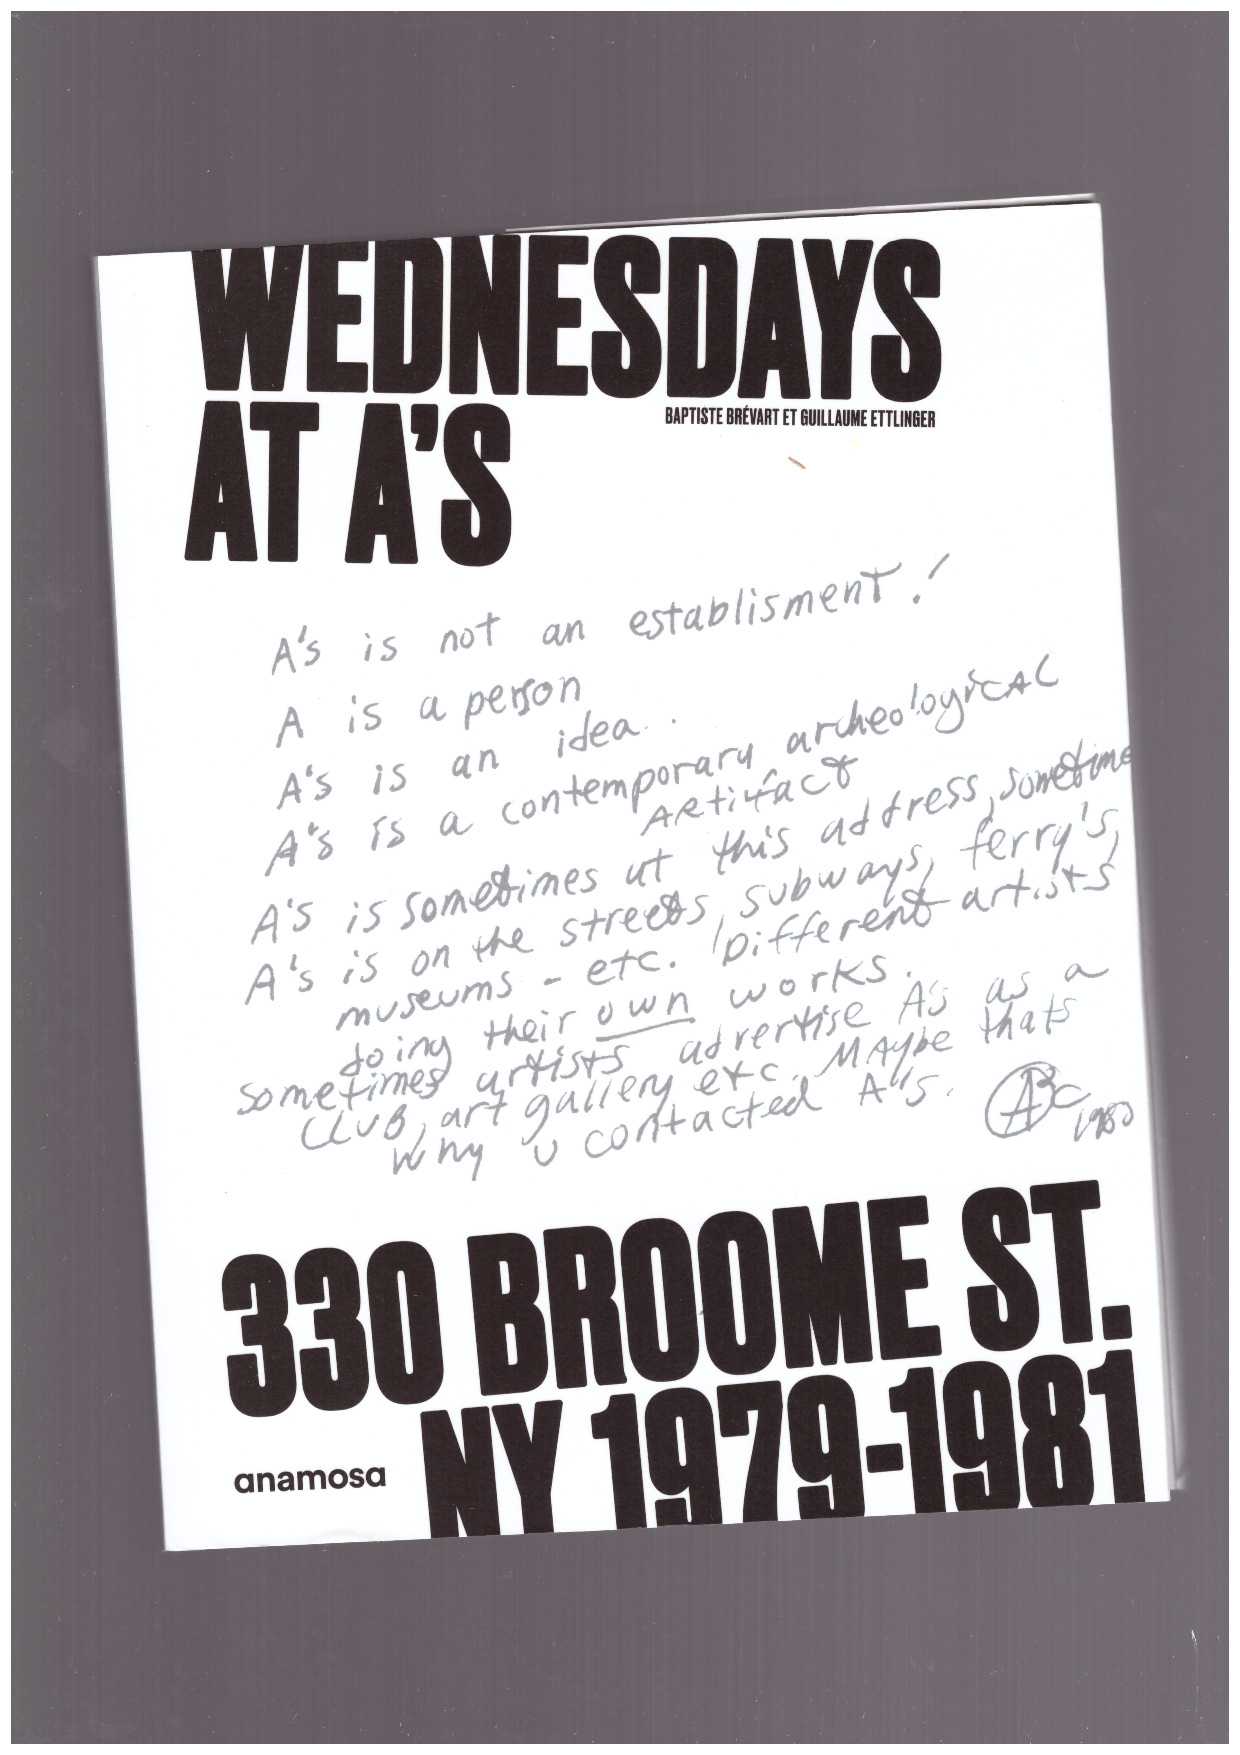 WEDNESDAYS
AT A'S
BAPTISTE BRÉVART ET GUILLAUME ETTLINGER
A's is not an establisment!
A is a person
A's is an idea.
A's is a contemporary archeological
ARtifact
A's is sometimes at this address, sometime
A's is on the streets, subways, ferry's,
museums - etc. Different artists
doing their own works.
sometimes artists advertise A's as a
CLUB, art gallery etc. MAybe thats
why u contacted A's.
ABC
1980
330 BROOME ST.
NY 1979-1981
anamosa